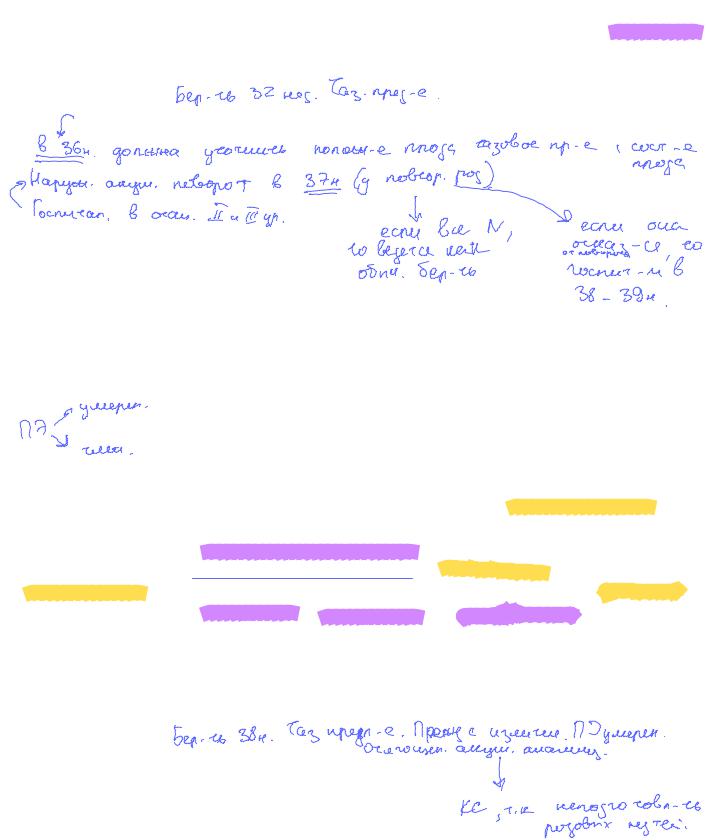 Бер-ть 32 нед. Таз. пред-е.
в 36н. должна уточнить полож-е плода тазовое пр-е, сост-е
плода
Наружн. акуш. поворот в 37н (у повтор. род)
Госпитал. в акуш. II и III ур.
если все N,
то ведется как
обычн. бер-ть
если она
отказ-ся, то
от поворота
госпит-м в
38 – 39н.
ПЭ
умерен.
тяж.
Бер-ть 38н. Таз предл-е. ПЭ умерен.
акуш.
КС, т.к неподготовл-ть
родовых путей.